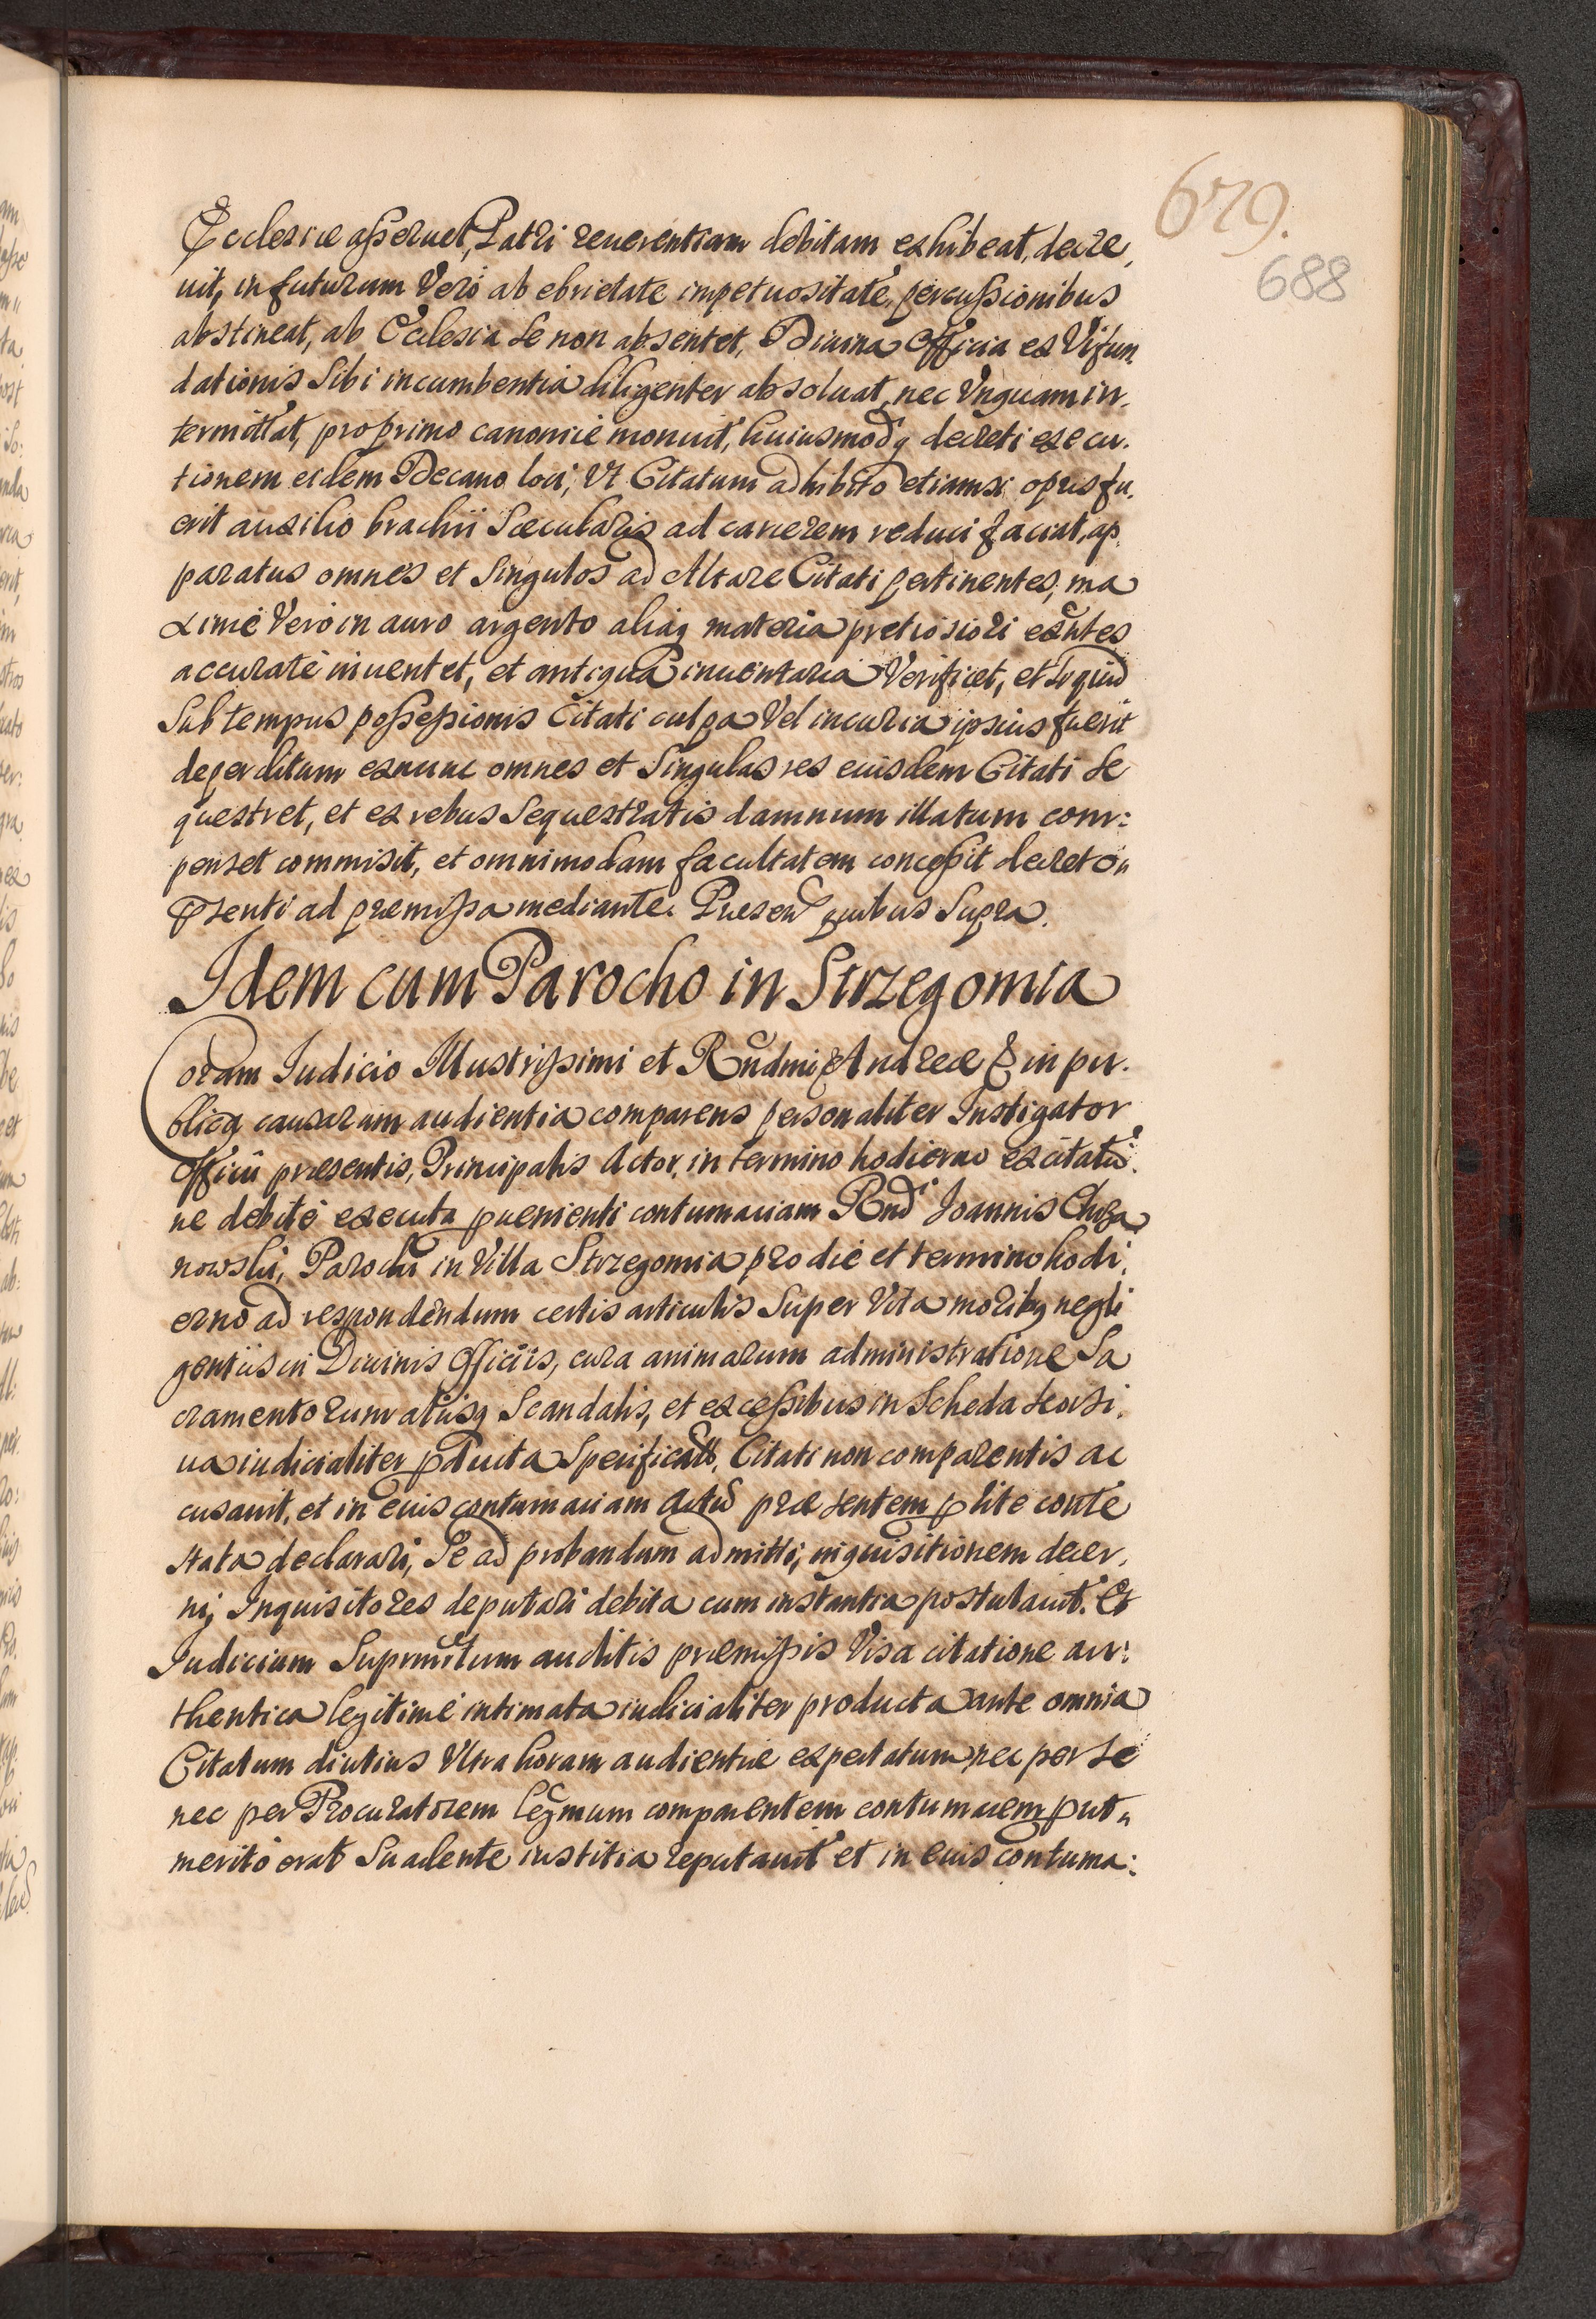 679.
688
Ecclesiæ asseruet, Patri reuerentiam debitam exhibeat, decre,
uit, in futurum Verò ab ebrietate impetuositate, percussionibus
abstineat, ab Ecclesia se non absentet, Diuina Officia ex Vi fun
dationis Sibi incumbentia diligenter absoluat, nec Vnquam in
termittat, pro primo canonicè monuit, huiusmodq decreti execu.
tionem eidem Decano loci, Vt Citatum adhibito etiamsi opus fu,
erit auxilio brachii Sæcularis ad carcerem reduci faciat, ap
paratus omnes et Singulos ad Altare Citati pertinentes, ma
ximè Verò in auro argento aliaq materia pretiosiori exñtes
accuratè inuentet, et antiqua inuentaria Verificet, et Si quid
Sub tempus possessionis Citati culpa Vel incuria ipsius fuerit
deperditum exnunc omnes et Singulas res eiusdem Citati Se
questret, et ex rebus Sequestratis damnum illatum com:
penset commisit, et omnimodam facultatem concessit decreto
pñsenti ad præmissa mediante. Præsen quibus Supra.
Idem cum Parocho in Strzegomia
Coram Iudicio Illustrissimi et Rñdmi Andreæ & in pu.
blicq causarum audientia comparens personaliter Instigator
Officii præsentis, Principalis Actor, in termino hodierno ex citatio
ne debitè executa puenienti contumaciam Rnd Joannis Chrza
nowski, Parochi in Villa Strzegomia pro die et termino hodi,
erno ad respondendum certis articulis Super Vita moribq negli
gentiis in Diuinis Officiis, cura animarum administratione Sa
cramentorum aliisq Scandalis, et excessibus in Scheda Seorsi,
ua iudicialiter pducta Specificatis, Citati non comparentis ac
cusauit, et in eius contumaciam Actũ præsentem p lite conte
stata declarari, Se ad probandum admitti, inquisitionem decer,
ni, Inquisitores deputari debita cum instantia postulauit. Et
Iudicium Suprantum auditis præmissis Visa citatione au:
thentica legitimè intimata iudicialiter producta ante omnia
Citatum diutius Vltra horam audientiæ expectatum nec per Se
nec per Procuratorem legmum comparentem contumacem put
meritò erat Suadente iustitia reputauit et in eius contuma: